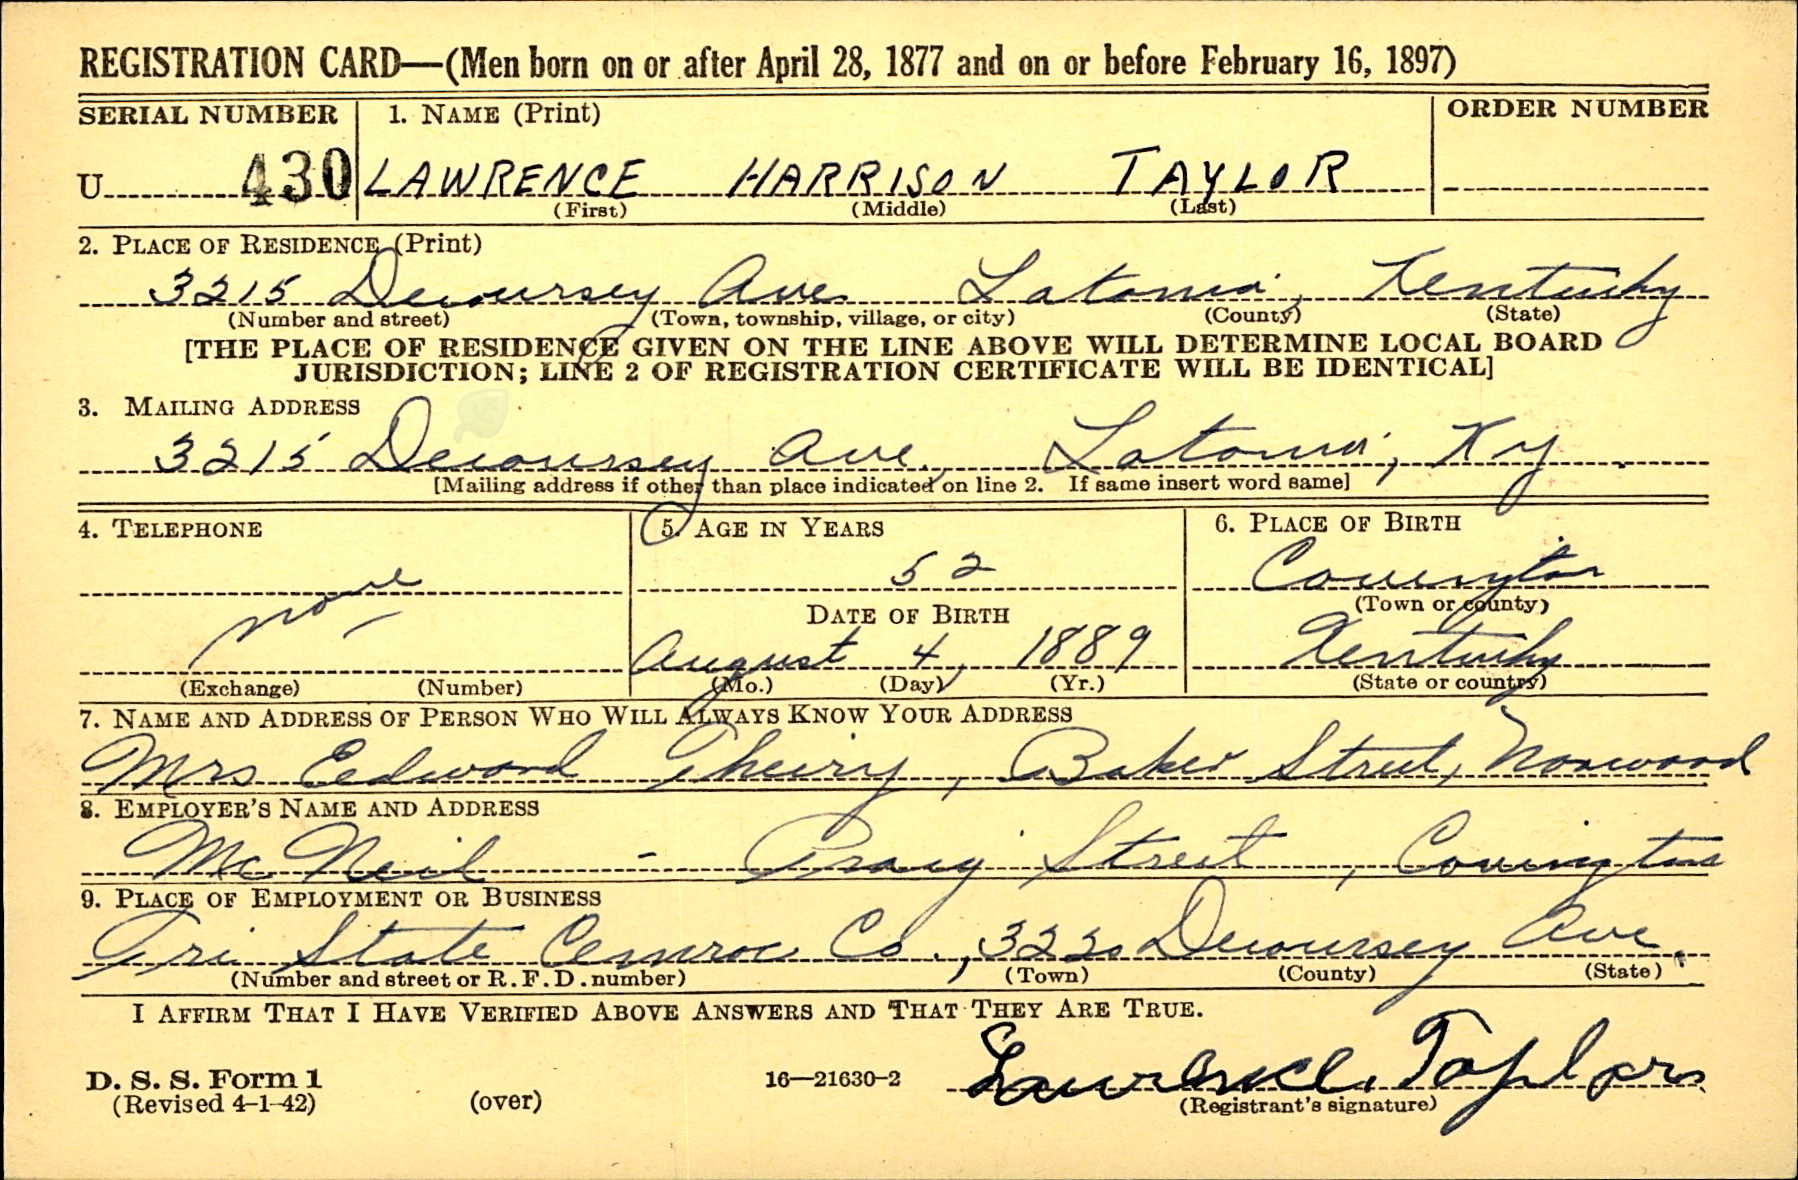 REGISTRATION CARD—(Men born on or after April 28, 1877 and on or before February 16, 1897)
SERIAL NUMBER
1. NAME (Print)
ORDER NUMBER
U 430
LAWRENCE HARRISON TAYLOR
(First) (Middle) (Last)
2. PLACE OF RESIDENCE (Print)
3215 Decoursey Ave Latonia, Kentucky
(Number and street) (Town, township, village, or city) (County) (State)
[THE PLACE OF RESIDENCE GIVEN ON THE LINE ABOVE WILL DETERMINE LOCAL BOARD
JURISDICTION; LINE 2 OF REGISTRATION CERTIFICATE WILL BE IDENTICAL]
3. MAILING ADDRESS
3215 Decoursey Ave., Latonia, Ky
[Mailing address if other than place indicated on line 2. If same insert word same]
4. TELEPHONE
none
(Exchange) (Number)
5. AGE IN YEARS
52
DATE OF BIRTH
August 4, 1889
(Mo.) (Day) (Yr.)
6. PLACE OF BIRTH
Covington
(Town or county)
Kentucky
(State or country)
7. NAME AND ADDRESS OF PERSON WHO WILL ALWAYS KNOW YOUR ADDRESS
Mrs Edward Theiry, Baker Street, Norwood
8. EMPLOYER'S NAME AND ADDRESS
Mc Neil - Street, Covington
9. PLACE OF EMPLOYMENT OR BUSINESS
Tri State Co., 3220 Decoursey Ave.
(Number and street or R. F. D. number) (Town) (County) (State)
I AFFIRM THAT I HAVE VERIFIED ABOVE ANSWERS AND THAT THEY ARE TRUE.
D. S. S. Form 1
(Revised 4-1-42)
(over)
16—21630-2
Lawrence Taylor
(Registrant's signature)